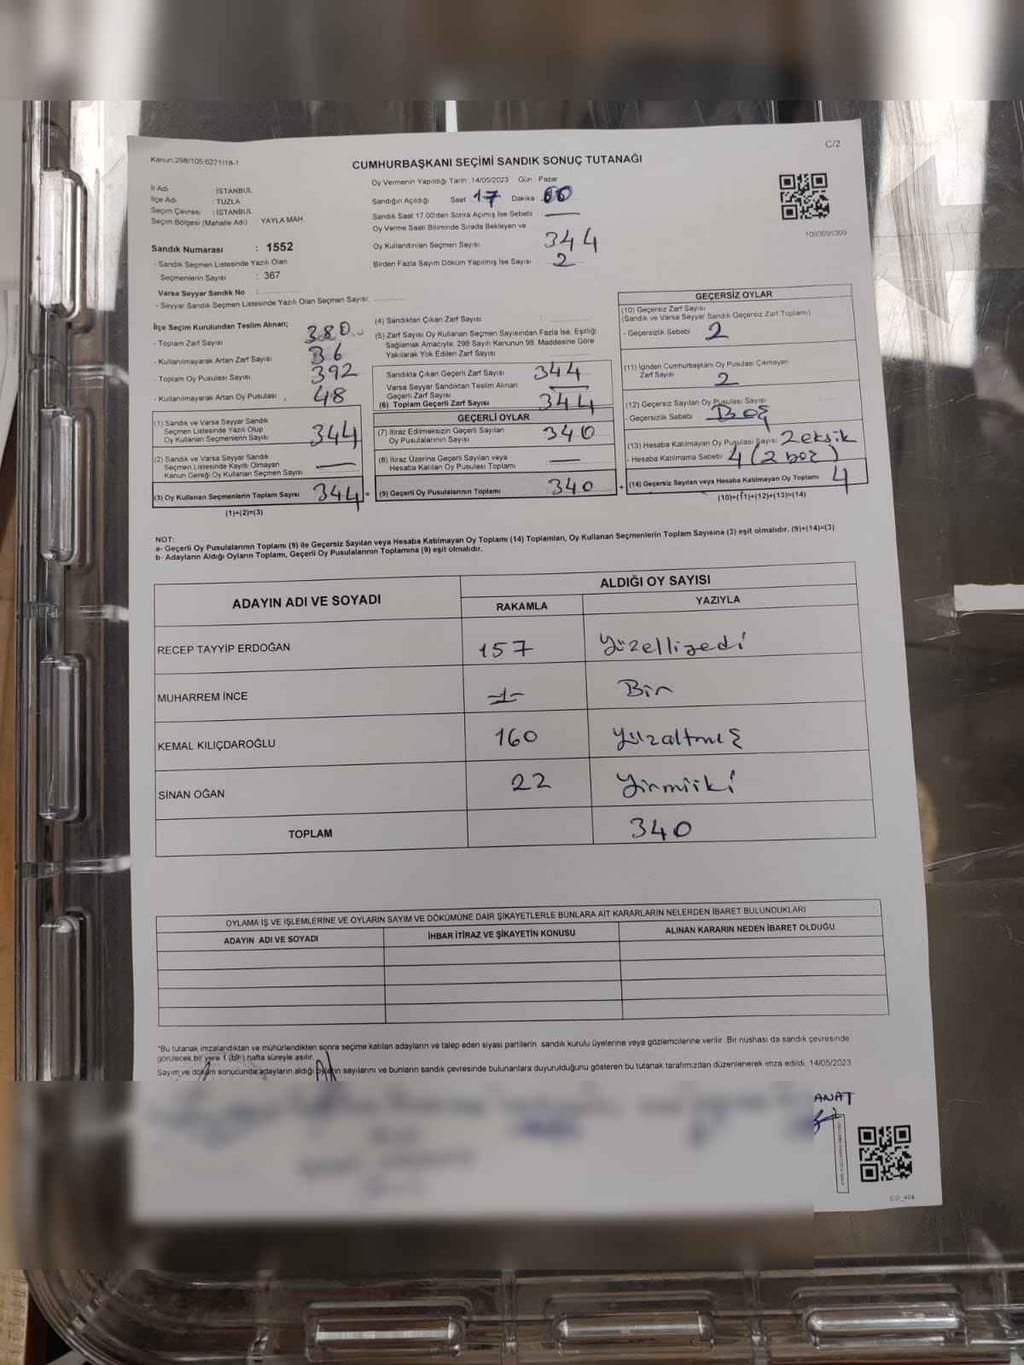 Kanun:298/105;6271/18-1
C/2
CUMHURBAŞKANI SEÇİMİ SANDIK SONUÇ TUTANAĞI
İl Adı : İSTANBUL
İlçe Adı : TUZLA
Seçim Çevresi : İSTANBUL
Seçim Bölgesi (Mahalle Adı) YAYLA MAH.
Sandık Numarası : 1552
- Sandık Seçmen Listesinde Yazılı Olan
Seçmenlerin Sayısı : 367
Varsa Seyyar Sandık No
- Seyyar Sandık Seçmen Listesinde Yazılı Olan Seçmen Sayısı:
Oy Vermenin Yapıldığı Tarih : 14/05/2023 Gün : Pazar
Sandığın Açıldığı Saat 17 Dakika : 00
Sandık Saat 17.00'den Sonra Açılmış İse Sebebi
Oy Verme Saati Bitiminde Sırada Bekleyen ve
Oy Kullandırılan Seçmen Sayısı 344
Birden Fazla Sayım Döküm Yapılmış İse Sayısı 2
İlçe Seçim Kurulundan Teslim Alınan;
- Toplam Zarf Sayısı 380
- Kullanılmayarak Artan Zarf Sayısı 36
- Toplam Oy Pusulası Sayısı 392
- Kullanılmayarak Artan Oy Pusulası 48
(1) Sandık ve Varsa Seyyar Sandık
Seçmen Listesinde Yazılı Olup
Oy Kullanan Seçmenlerin Sayısı 344
(2) Sandık ve Varsa Seyyar Sandık
Seçmen Listesinde Kayıtlı Olmayan
Kanun Gereği Oy Kullanan Seçmen Sayısı —
(3) Oy Kullanan Seçmenlerin Toplam Sayısı 344
(1)+(2)=(3)
(4) Sandıktan Çıkan Zarf Sayısı
(5) Zarf Sayısı Oy Kullanan Seçmen Sayısından Fazla İse, Eşitliği
Sağlamak Amacıyla, 298 Sayılı Kanunun 98. Maddesine Göre
Yakılarak Yok Edilen Zarf Sayısı
Sandıkta Çıkan Geçerli Zarf Sayısı 344
Varsa Seyyar Sandıktan Teslim Alınan
Geçerli Zarf Sayısı —
(6) Toplam Geçerli Zarf Sayısı 344
GEÇERLİ OYLAR
(7) İtiraz Edilmeksizin Geçerli Sayılan
Oy Pusulalarının Sayısı 340
(8) İtiraz Üzerine Geçerli Sayılan veya
Hesaba Katılan Oy Pusulası Toplamı —
(9) Geçerli Oy Pusulalarının Toplamı 340
GEÇERSİZ OYLAR
(10) Geçersiz Zarf Sayısı
(Sandık ve Varsa Seyyar Sandık Geçersiz Zarf Toplamı)
- Geçersizlik Sebebi 2
(11) İçinden Cumhurbaşkanı Oy Pusulası Çıkmayan
Zarf Sayısı 2
(12) Geçersiz Sayılan Oy Pusulası Sayısı
- Geçersizlik Sebebi Boş
(13) Hesaba Katılmayan Oy Pusulası Sayısı 2 eksik
- Hesaba Katılmama Sebebi 4 (2 boş)
(14) Geçersiz Sayılan veya Hesaba Katılmayan Oy Toplamı 4
(10)+(11)+(12)+(13)=(14)
NOT:
a- Geçerli Oy Pusulalarının Toplamı (9) ile Geçersiz Sayılan veya Hesaba Katılmayan Oy Toplamı (14) Toplamları, Oy Kullanan Seçmenlerin Toplam Sayısına (3) eşit olmalıdır. (9)+(14)=(3)
b- Adayların Aldığı Oyların Toplamı, Geçerli Oy Pusulalarının Toplamına (9) eşit olmalıdır.
ADAYIN ADI VE SOYADI
ALDIĞI OY SAYISI
RAKAMLA YAZIYLA
RECEP TAYYİP ERDOĞAN 157 Yüzelliyedi
MUHARREM İNCE 1 Bir
KEMAL KILIÇDAROĞLU 160 Yüzaltmış
SİNAN OĞAN 22 Yirmiiki
TOPLAM 340
OYLAMA İŞ VE İŞLEMLERİNE VE OYLARIN SAYIM VE DÖKÜMÜNE DAİR ŞİKAYETLERLE BUNLARA AİT KARARLARIN NELERDEN İBARET BULUNDUKLARI
ADAYIN ADI VE SOYADI İHBAR İTİRAZ VE ŞİKAYETİN KONUSU ALINAN KARARIN NEDEN İBARET OLDUĞU
*Bu tutanak imzalandıktan ve mühürlendikten sonra seçime katılan adayların ve talep eden siyasi partilerin, sandık kurulu üyelerine veya gözlemcilerine verilir. Bir nüshası da sandık çevresinde
görülecek bir yere 1 (bir) hafta süreyle asılır.
Sayım ve döküm sonucunda adayların aldığı oyların sayılarını ve bunların sandık çevresinde bulunanlara duyurulduğunu gösteren bu tutanak tarafımızdan düzenlenerek imza edildi. 14/05/2023
ANAT